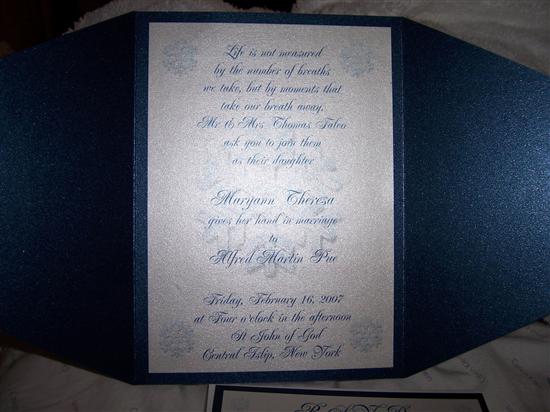 Life is not measured
by the number of breaths
we take, but by moments that
take our breath away.
Mr & Mrs Thomas Falco
ask you to join them
as their daughter
Maryann Theresa
gives her hand in marriage
to
Alfred Martin Pue
Friday, February 16, 2007
at Four o'clock in the afternoon
St John of God
Central Islip, New York